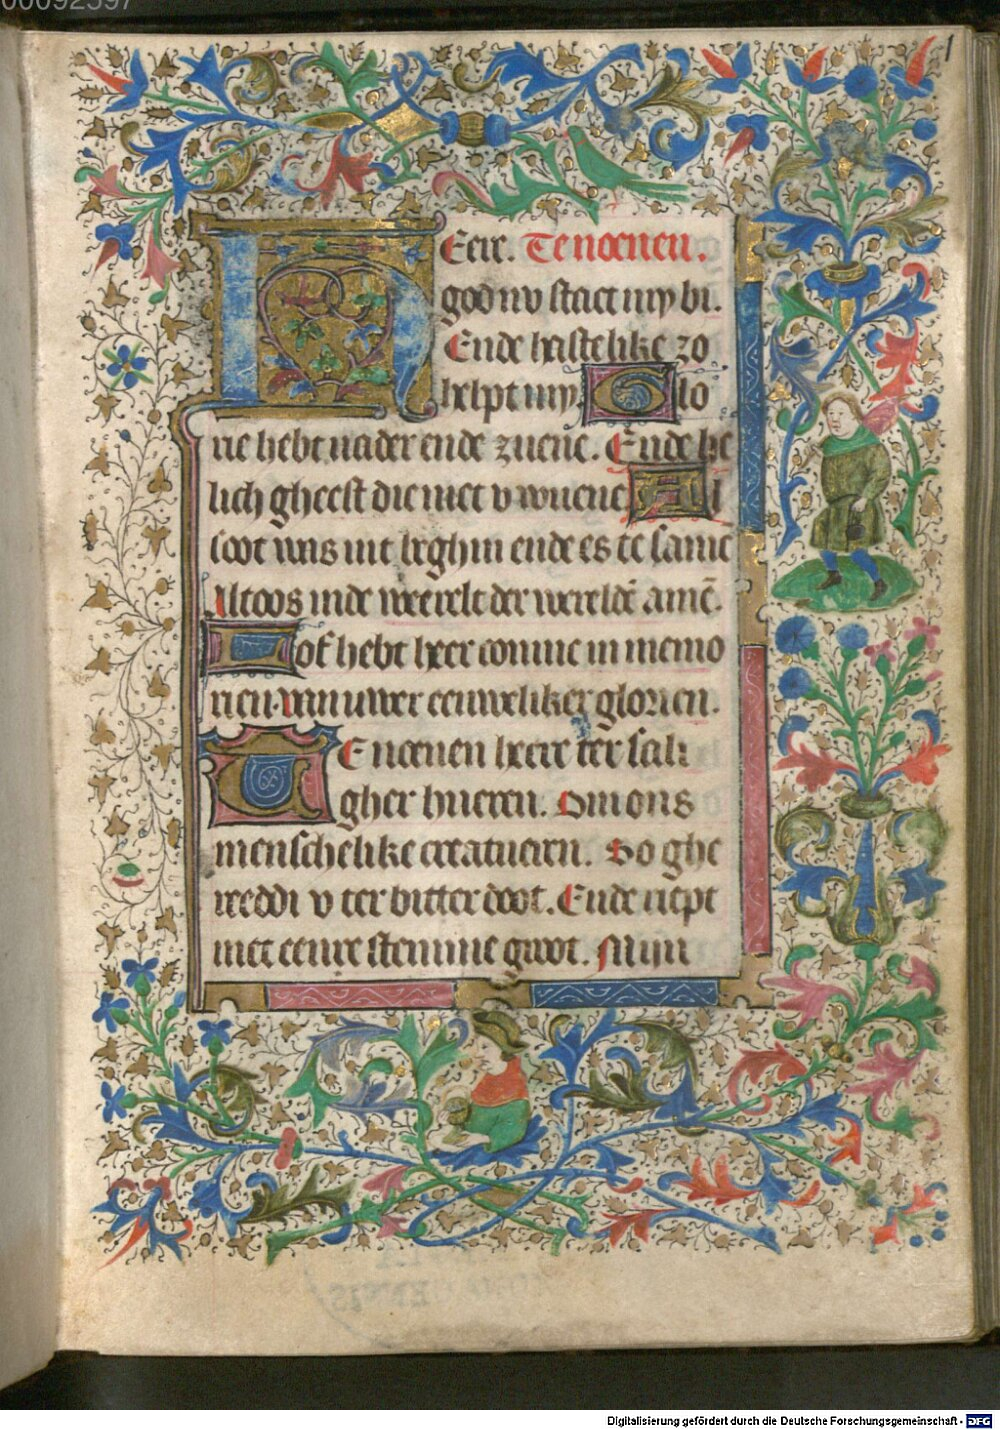 00092597
1
HEere. Te noenen.
god nv staet my bi.
Ende haestelike zo
helpt my. Glo
rie hebt vader ende zuene. Ende he
lich gheest die met v wuene Al
soot was int beghin ende es te samē
Altoos inde weerelt der wereldē amē.
Lof hebt heer comme in memo
rien van uwer eeuweliker glorien.
TE noenen heere ter sali
gher hueren. Om ons
menschelike creatueren. So ghe
reeddi v ter bitter doot. Ende riept
met eenre stemme groot. Mijn
Digitalisierung gefördert durch die Deutsche Forschungsgemeinschaft - DFG